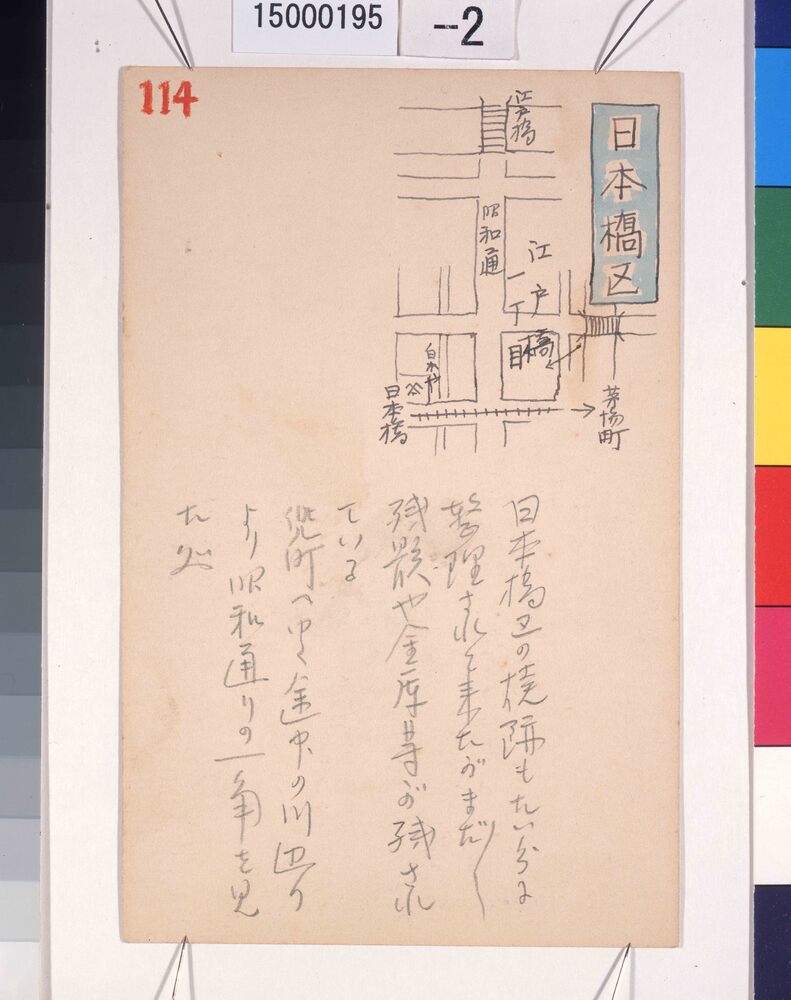 15000195
-2
114
日本橋区
江戸橋
昭和通
江戸橋
一丁目
白木や
日本橋
茅場町
日本橋区の焼跡もたい分に
整理されて来たがまだ〱
残骸や金庫等が残され
ている
兜町へゆく途中の川辺り
より昭和通りの一角を見
た処